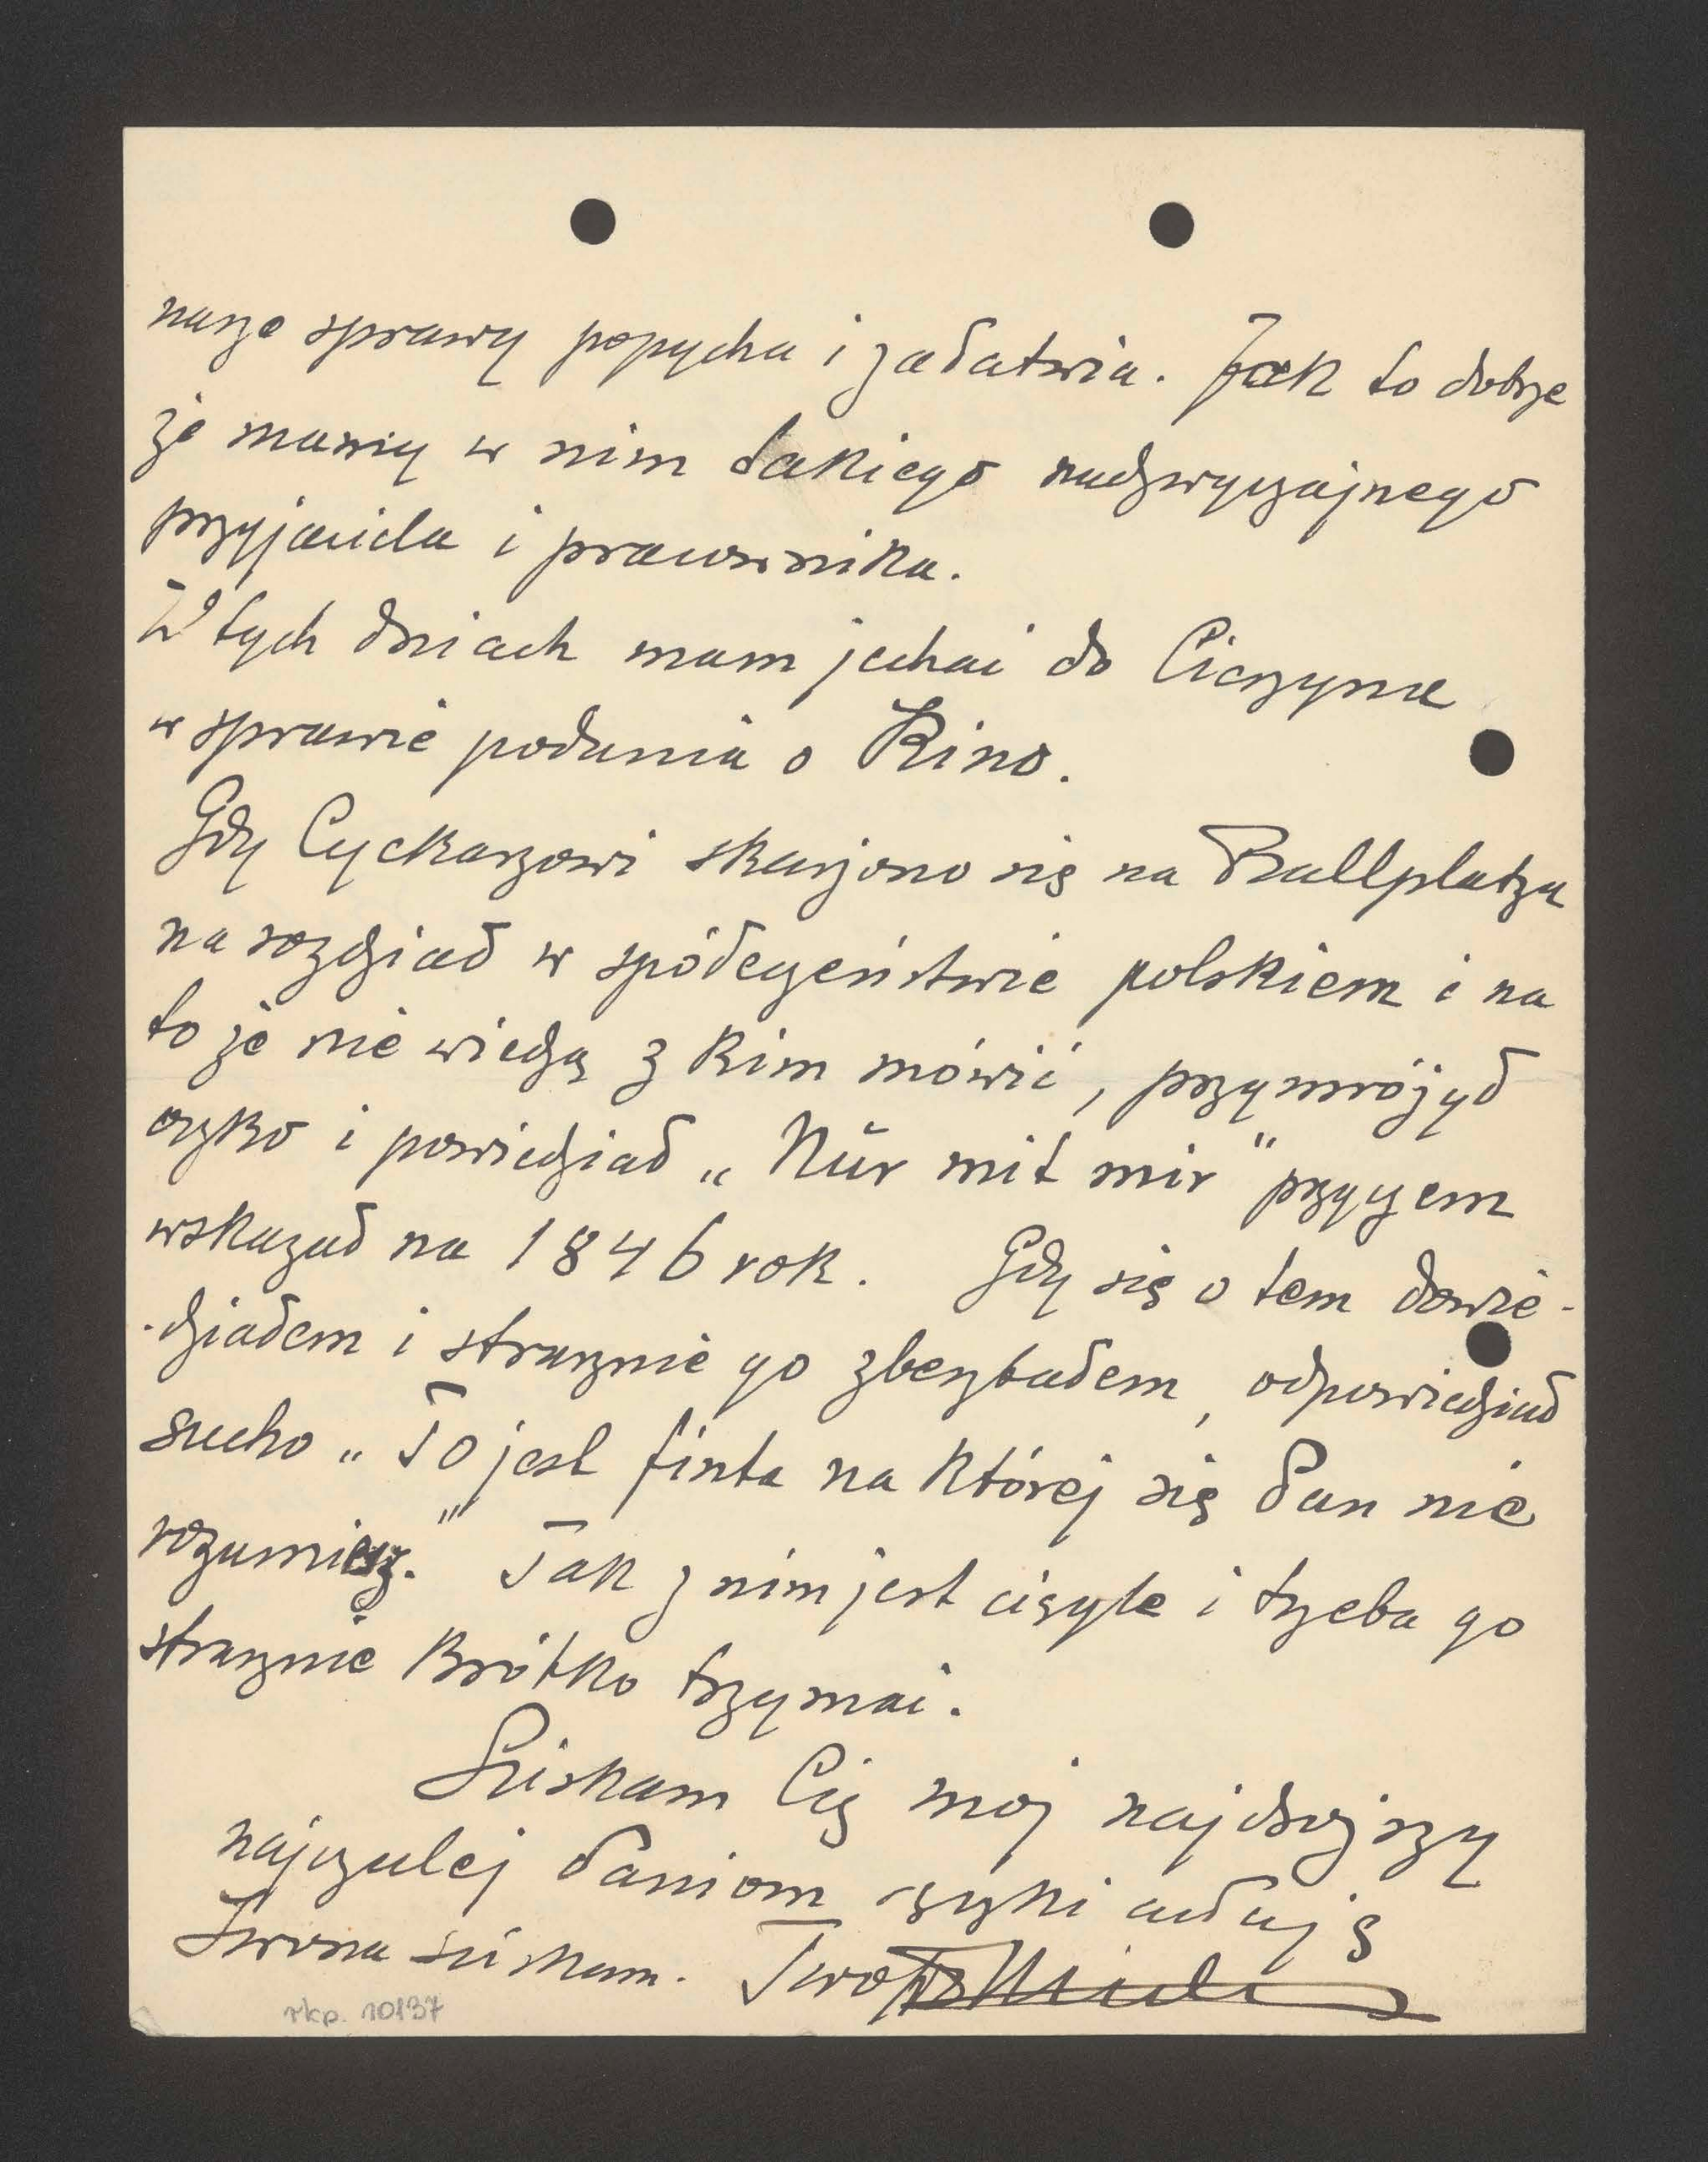 nasze sprawy popycha i załatwia. Jak to dobrze
że mamy w nim takiego nadzwyczajnego
przyjaciela i prawnika.
W tych dniach mam jechać do Cieszyna
w sprawie podania o Kino.
Gdy Cyckarzowi skarżono się na Ballplatzu
na rozdział w spółeczeństwie polskiem i na
to że nie wiedzą z kim mówić, przymróżył
oczko i powiedział „Nūr mit mir" przyczem
wskazał na 1846 rok. Gdy się o tem dowie-
-działem i strasznie go zbeształem, odpowiedział
sucho „To jest finta na której się Pan nie
rozumiesz." Tak z nim jest ciągle i trzeba go
strasznie krótko trzymać.
Ściskam Cię mój najdroższy
najczulej Paniom rączki całuję
Iwona ściskam. Twój
rkp. 10137